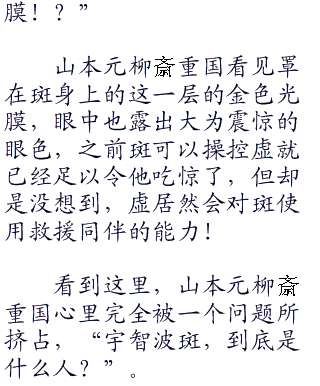 膜！？”
山本元柳斎重国看见罩
在斑身上的这一层的金色光
膜，眼中也露出大为震惊的
眼色，之前斑可以操控虚就
已经足以令他吃惊了，但却
是没想到，虚居然会对斑使
用救援同伴的能力！
看到这里，山本元柳斎
重国心里完全被一个问题所
挤占，“宇智波斑，到底是
什么人？”。